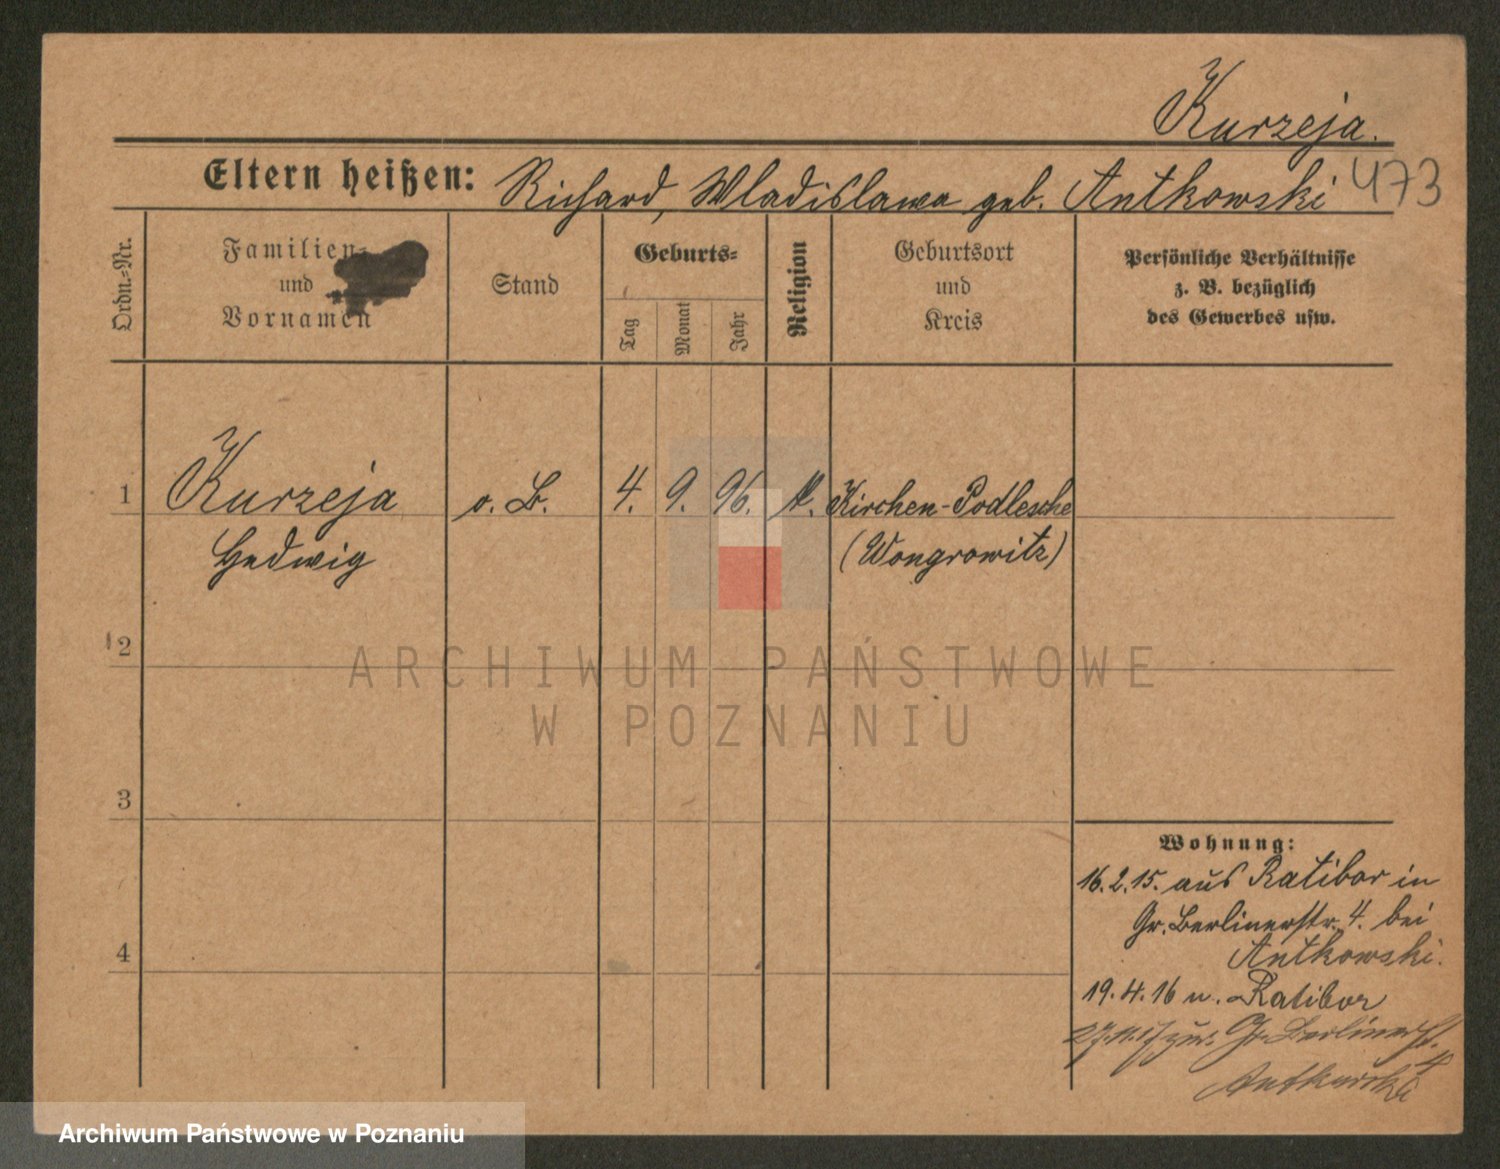 Kurzeja.
Eltern heißen: Richard, Wladislawa geb. Antkowski 473
Ordn.-Nr.
Familien-
und
Vornamen
Stand
Geburts-
Tag
Monat
Jahr
Religion
Geburtsort
und
Kreis
Persönliche Verhältnisse
z. B. bezüglich
des Gewerbes usw.
1 Kurzeja o. B. 4. 9. 96. k. Kirchen-Podlesche
Hedwig (Wongrowitz)
2
ARCHIWUM PAŃSTWOWE
W POZNANIU
3
Wohnung:
16.2.15. aus Ratibor in
Gr. Berlinerstr. 4. bei
Antkowski.
4
19.4.16 n. Ratibor
Gr. Berlinerst. 4
Archiwum Państwowe w Poznaniu